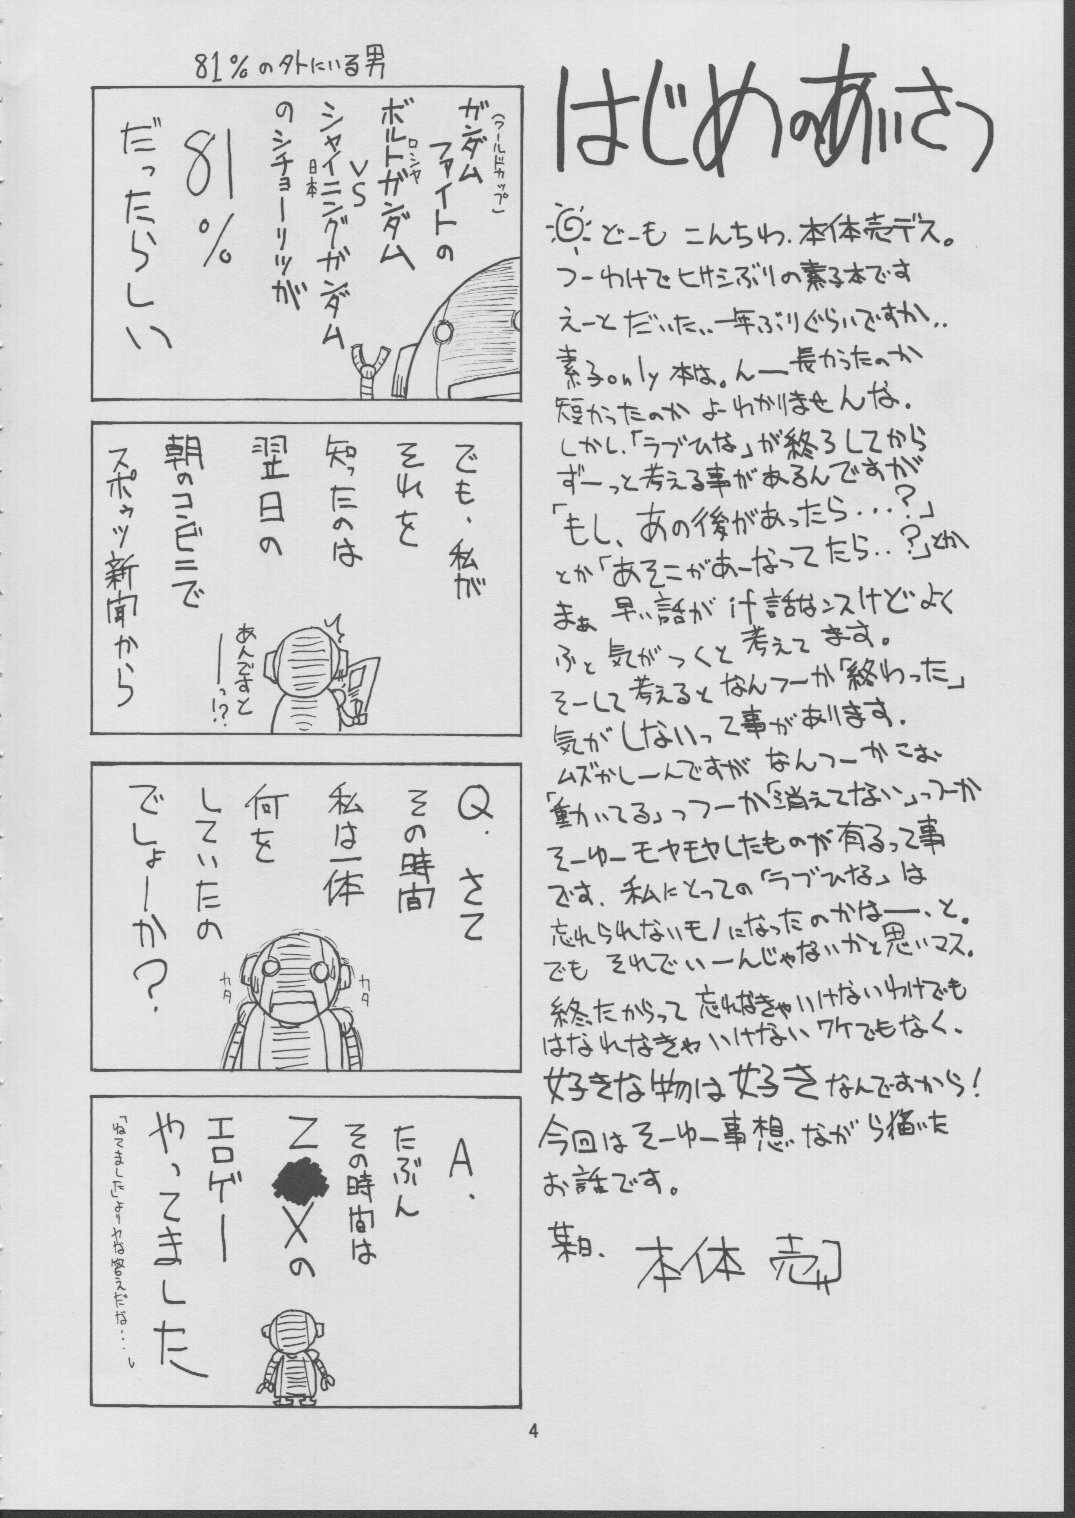 はじめのあいさつ
どーも こんちわ、本体売デス。
つーわけでヒサシぶりの素子本です
えーと だいた、、一年ぶりぐらいですか、、
素子only 本は。んー長かったのか
短かったのか よーわかりませんな。
しかし、「ラブひな」が終ろしてから
ずーっと考える事があるんですが
「もし、あの後があったら・・・?」
とか「あそこがあーなってたら・・?」とか
まぁ 早い話が if話なンスけど よく
ふと 気がつくと 考えてます。
そーして考えるとなんつーか「終わった」
気がしないって事があります。
ムズかしーんですが なんつーかこお
「動いてる」っつーか「消えてない」っつーか
そーゆーモヤモヤしたものが有るって事
です。私にとっての「ラブひな」は
忘れられないモノになったのかなー、と。
でも それでいーんじゃないかと思いマス。
終ったからって 忘れなきゃいけないわけでも
はなれなきゃいけないワケでもなく、
好きな物は好きなんですから!
今回はそーゆー事想いながら描いた
お話です。
某日、 本体 売
81%の外にいる男
(ワールドカップ)
ガンダム
ファイトの
ロシヤ
ボルトガンダム
VS
日本
シャイニングガンダム
のシチョーリツが
81%
だったらしい
でも、私が
それを
知ったのは
翌日の
朝のコンビニで
スポーツ新聞から
あんですと
ーっ!?
Q. さて
その時間
私は一体
何を
していたの
でしょーか?
カタ
カタ
A.
たぶん
その時間は
乙 Xの
エロゲー
やってました
「ねてました」よりヤな答えだな・・・。
4